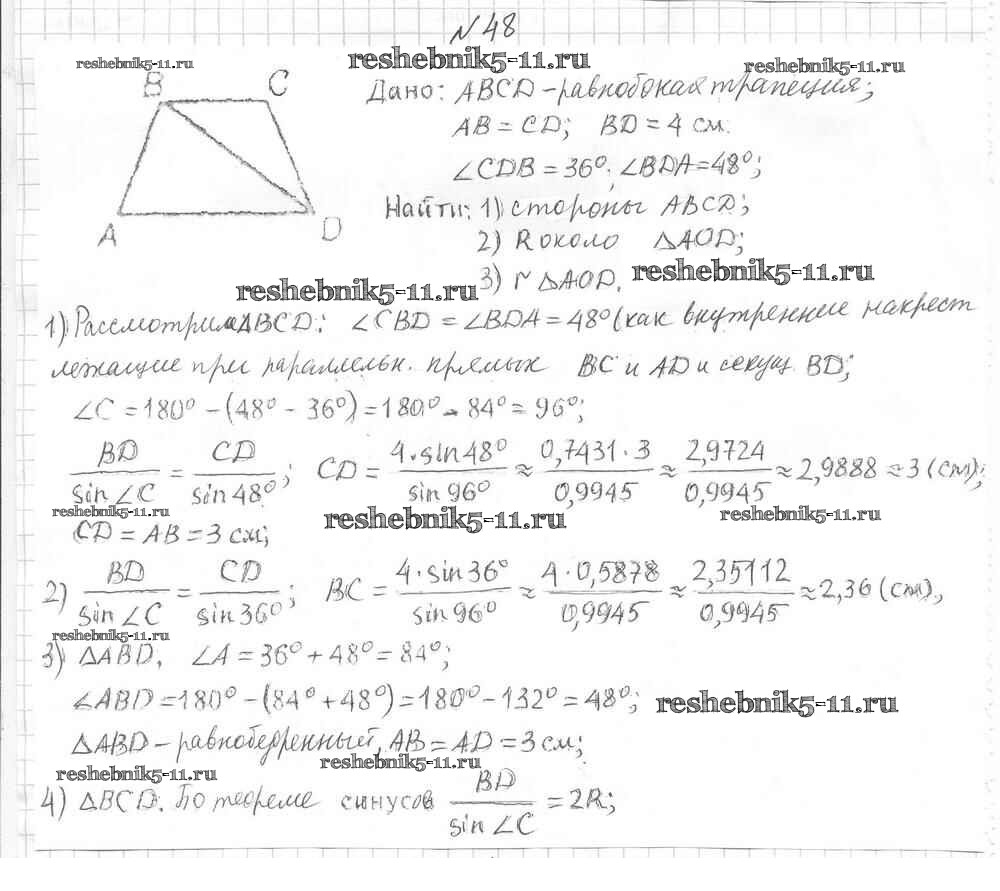 №48
reshebnik5-11.ru reshebnik5-11.ru reshebnik5-11.ru
B C
Дано: ABCD – равнобокая трапеция;
AB = CD; BD = 4 см.
∠CDB = 36°; ∠BDA = 48°;
A D
Найти: 1) стороны ABCD;
2) R около △AOD;
3) r △AOD. reshebnik5-11.ru
reshebnik5-11.ru
1) Рассмотрим △BCD: ∠CBD = ∠BDA = 48° (как внутренние накрест
лежащие при параллельн. прямых BC и AD и секущ. BD;
∠C = 180° – (48° – 36°) = 180° – 84° = 96°;
BD/sin∠C = CD/sin48°; CD = 4·sin48°/sin96° ≈ 0,7431·3/0,9945 ≈ 2,9724/0,9945 ≈ 2,9888 ≈ 3 (см);
reshebnik5-11.ru reshebnik5-11.ru reshebnik5-11.ru
CD = AB = 3 см;
2) BD/sin∠C = CD/sin36°; BC = 4·sin36°/sin96° ≈ 4·0,5878/0,9945 ≈ 2,35112/0,9945 ≈ 2,36 (см).,
reshebnik5-11.ru
3) △ABD, ∠A = 36° + 48° = 84°;
∠ABD = 180° – (84° + 48°) = 180° – 132° = 48°; reshebnik5-11.ru
△ABD – равнобедренный, AB = AD = 3 см;
reshebnik5-11.ru reshebnik5-11.ru
4) △BCD. По теореме синусов BD/sin∠C = 2R;